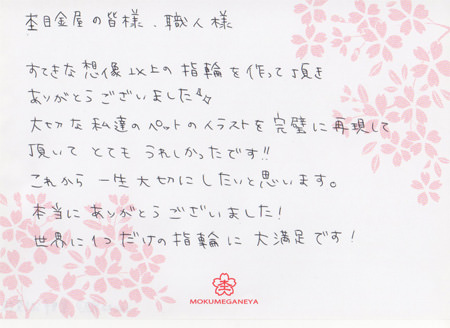 杢目金屋の皆様、職人様
すてきな想像以上の指輪を作って頂き
ありがとうございました
大切な私達のペットのイラストを完璧に再現して
頂いて とても うれしかったです!!
これから一生大切にしたいと思います。
本当に ありがとうございました!
世界に1つだけの指輪に 大満足です!
MOKUMEGANEYA